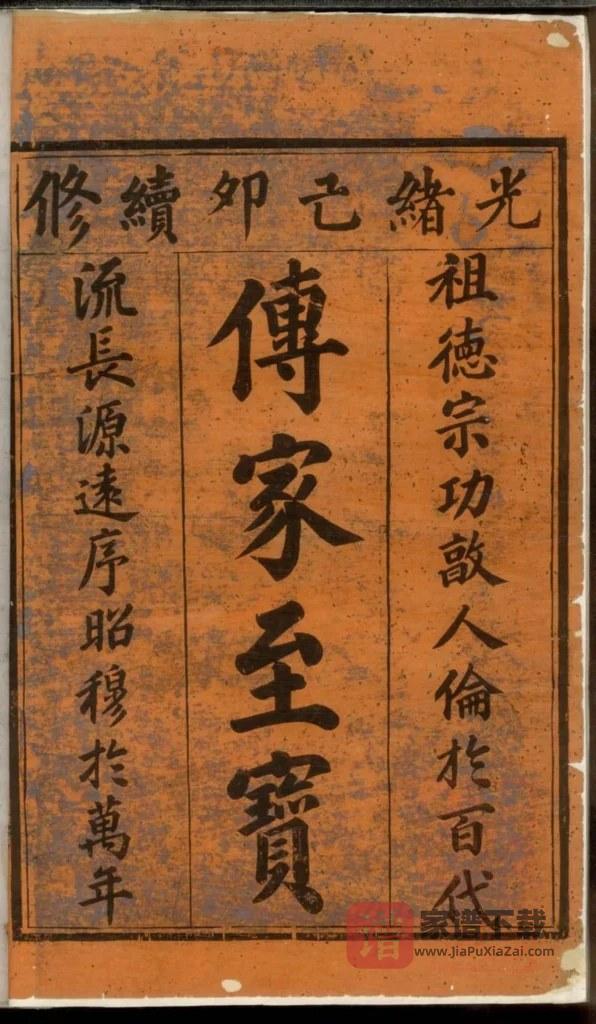 光緒己卯續修
祖德宗功敦人倫於百代
傳家至寶
流長源遠序昭穆於萬年
谱 家谱下载
www.JiaPuXiaZai.com